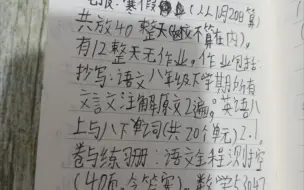 寒假(从1月20日算)
共放40整天(不算在内)。
有12整天无作业。作业包括
抄写:语文八年级下学期所有
文言文注解原文2遍。英语八
上与八下单词(共20个单元)2:1。
卷与练习册:语文全程时空
(40页,含答案)。数学